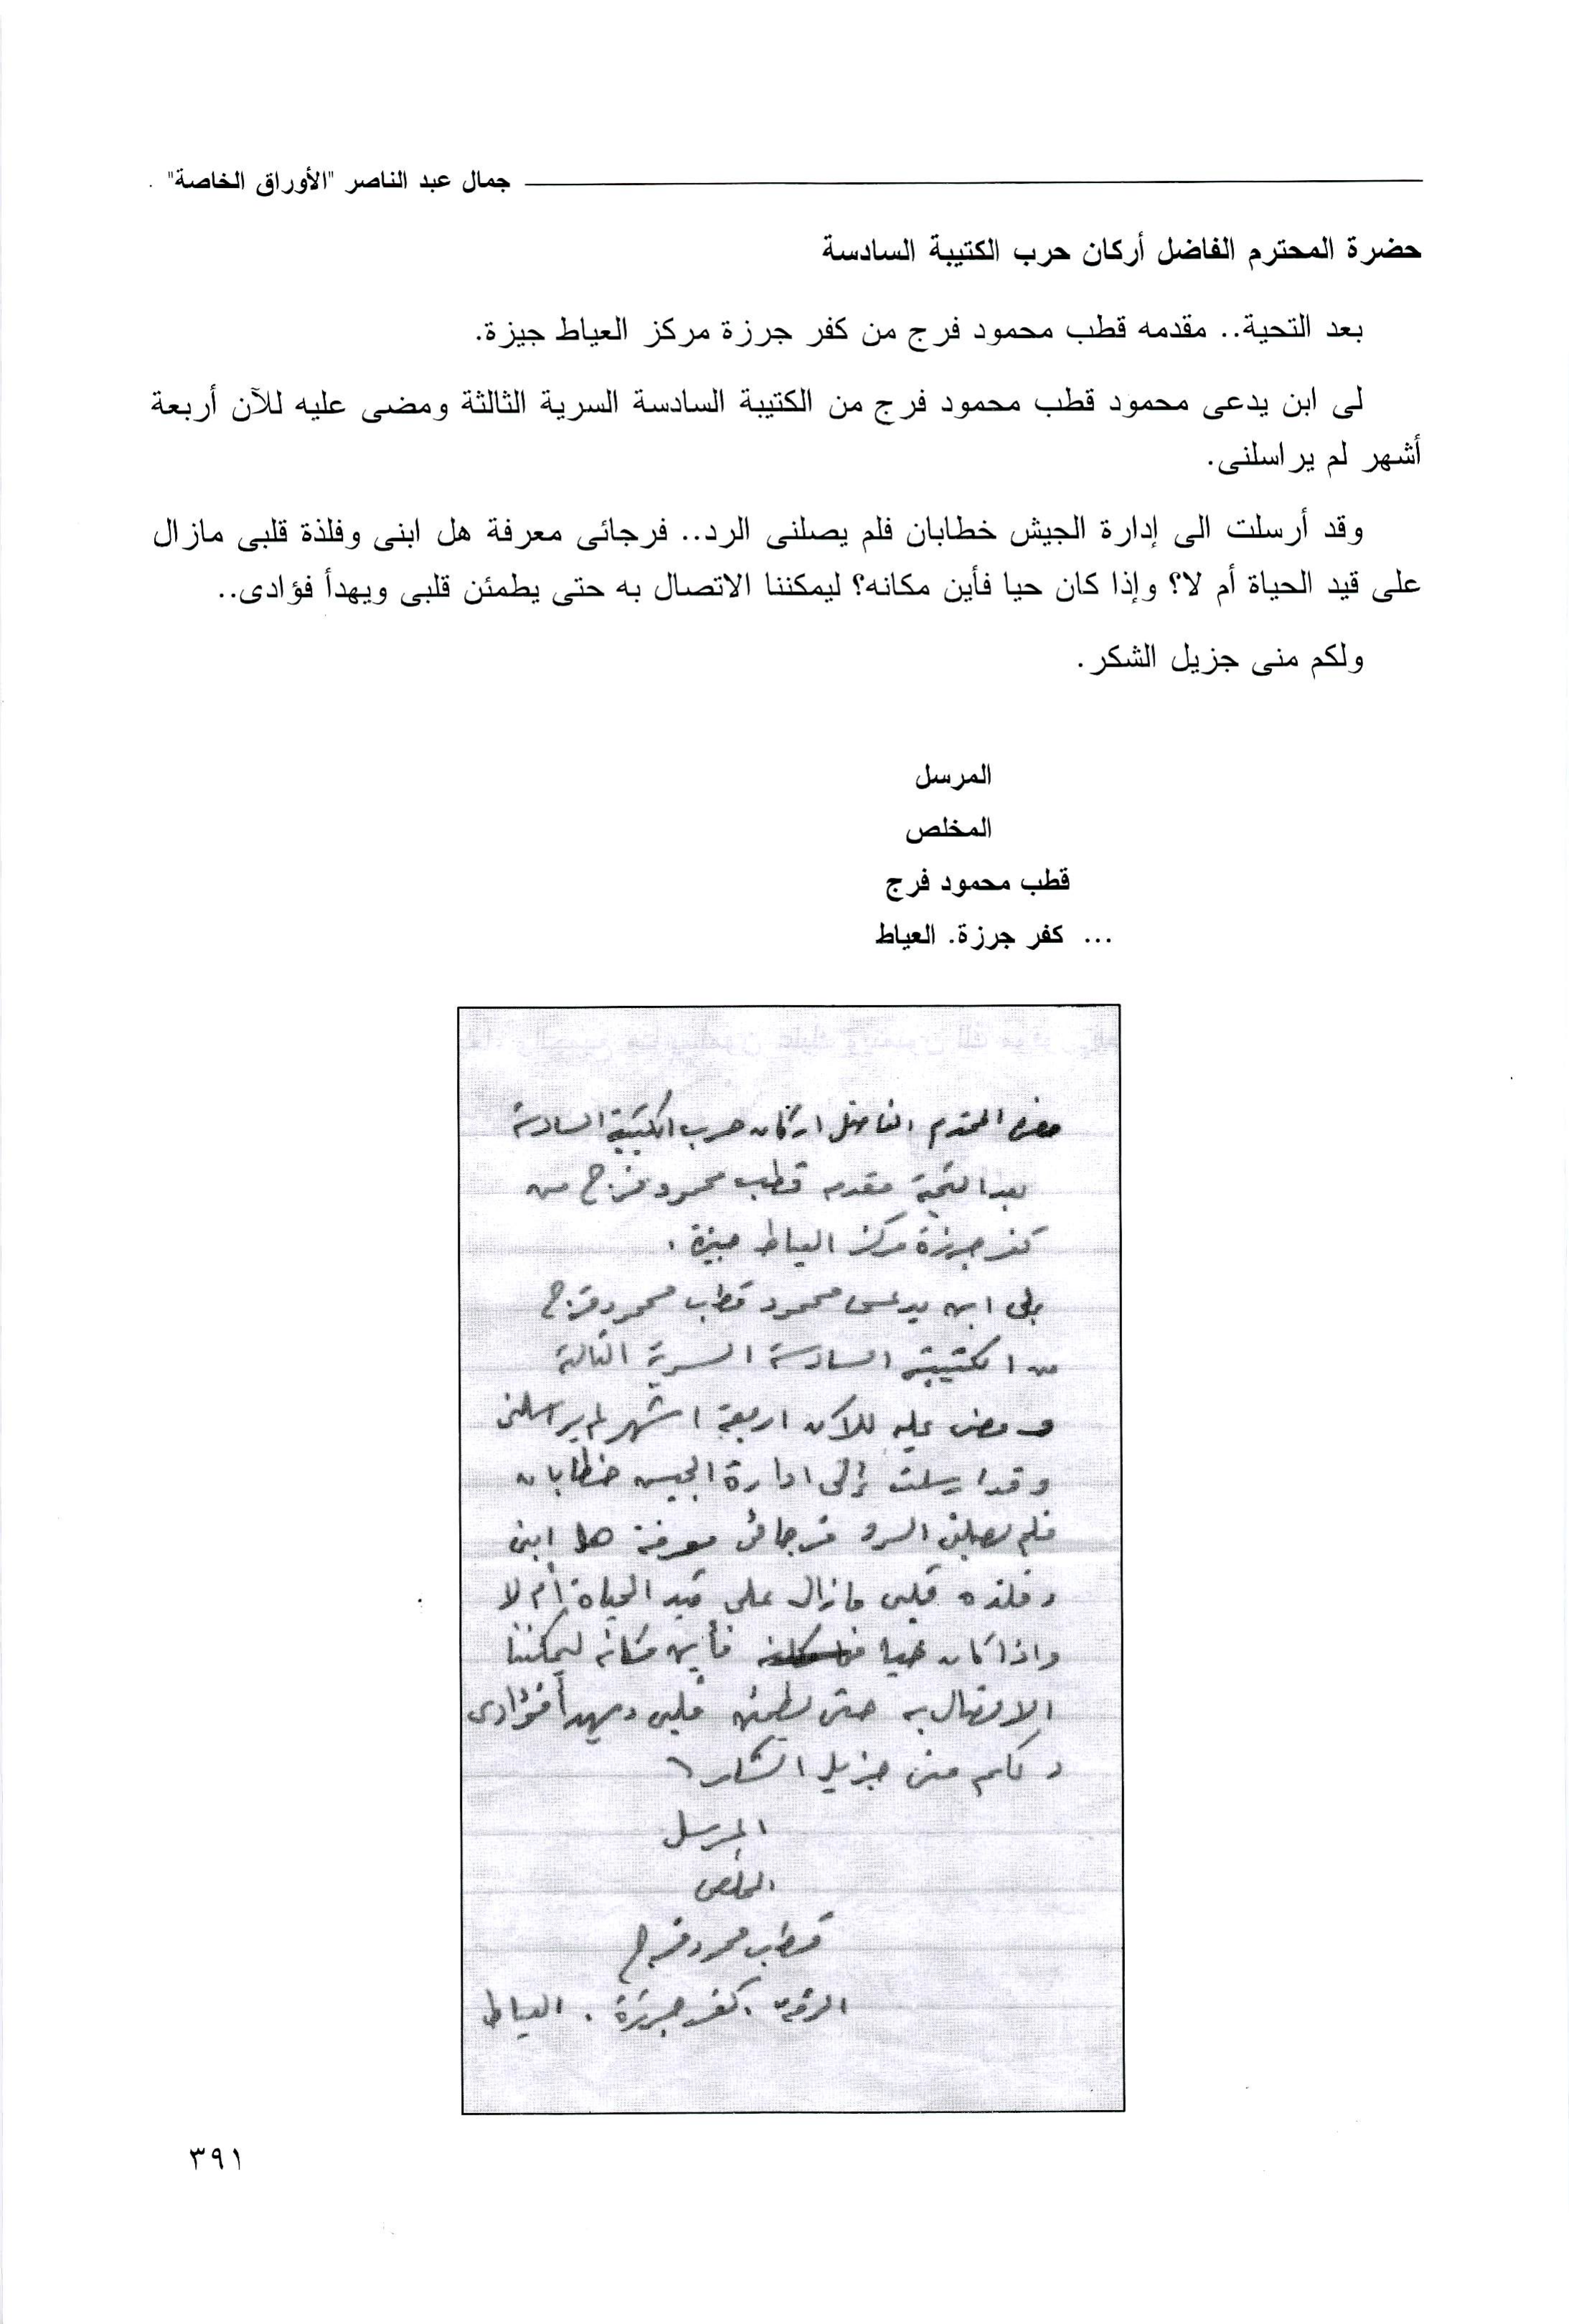 جمال عبد الناصر "الأوراق الخاصة"
حضرة المحترم الفاضل أركان حرب الكتيبة السادسة
بعد التحية.. مقدمه قطب محمود فرج من كفر جرزة مركز العياط جيزة.
لى ابن يدعى محمود قطب محمود فرج من الكتيبة السادسة السرية الثالثة ومضى عليه للآن أربعة
أشهر لم يراسلنى.
وقد أرسلت الى إدارة الجيش خطابان فلم يصلنى الرد.. فرجائى معرفة هل ابنى وفلذة قلبى مازال
على قيد الحياة أم لا؟ وإذا كان حيا فأين مكانه؟ ليمكننا الاتصال به حتى يطمئن قلبى ويهدأ فؤادى..
ولكم منى جزيل الشكر.
المرسل
المخلص
قطب محمود فرج
... كفر جرزة. العياط
حضرة المحترم الفاضل اركان حرب الكتيبة السادسة
بعد التحية مقدمه قطب محمود فرج من
كفر جرزة مركز العياط جيزة .
لى ابن يدعى محمود قطب محمود فرج
من الكتيبة السادسة السرية الثالثة
ومضى عليه للآن اربعة اشهر لم يراسلنى
وقد ارسلت إلى ادارة الجيش خطابان
فلم يصلنى الرد فرجائى معرفة هل ابنى
وفلذه قلبى مازال على قيد الحياة أم لا
واذا كان حيا فأين مكانه ليمكننا
الاتصال به حتى يطمئن قلبى ويهدأ فؤادى
ولكم منى جزيل الشكر
المرسل
المخلص
قطب محمود فرج
كفر جرزة . العياط
٣٩١